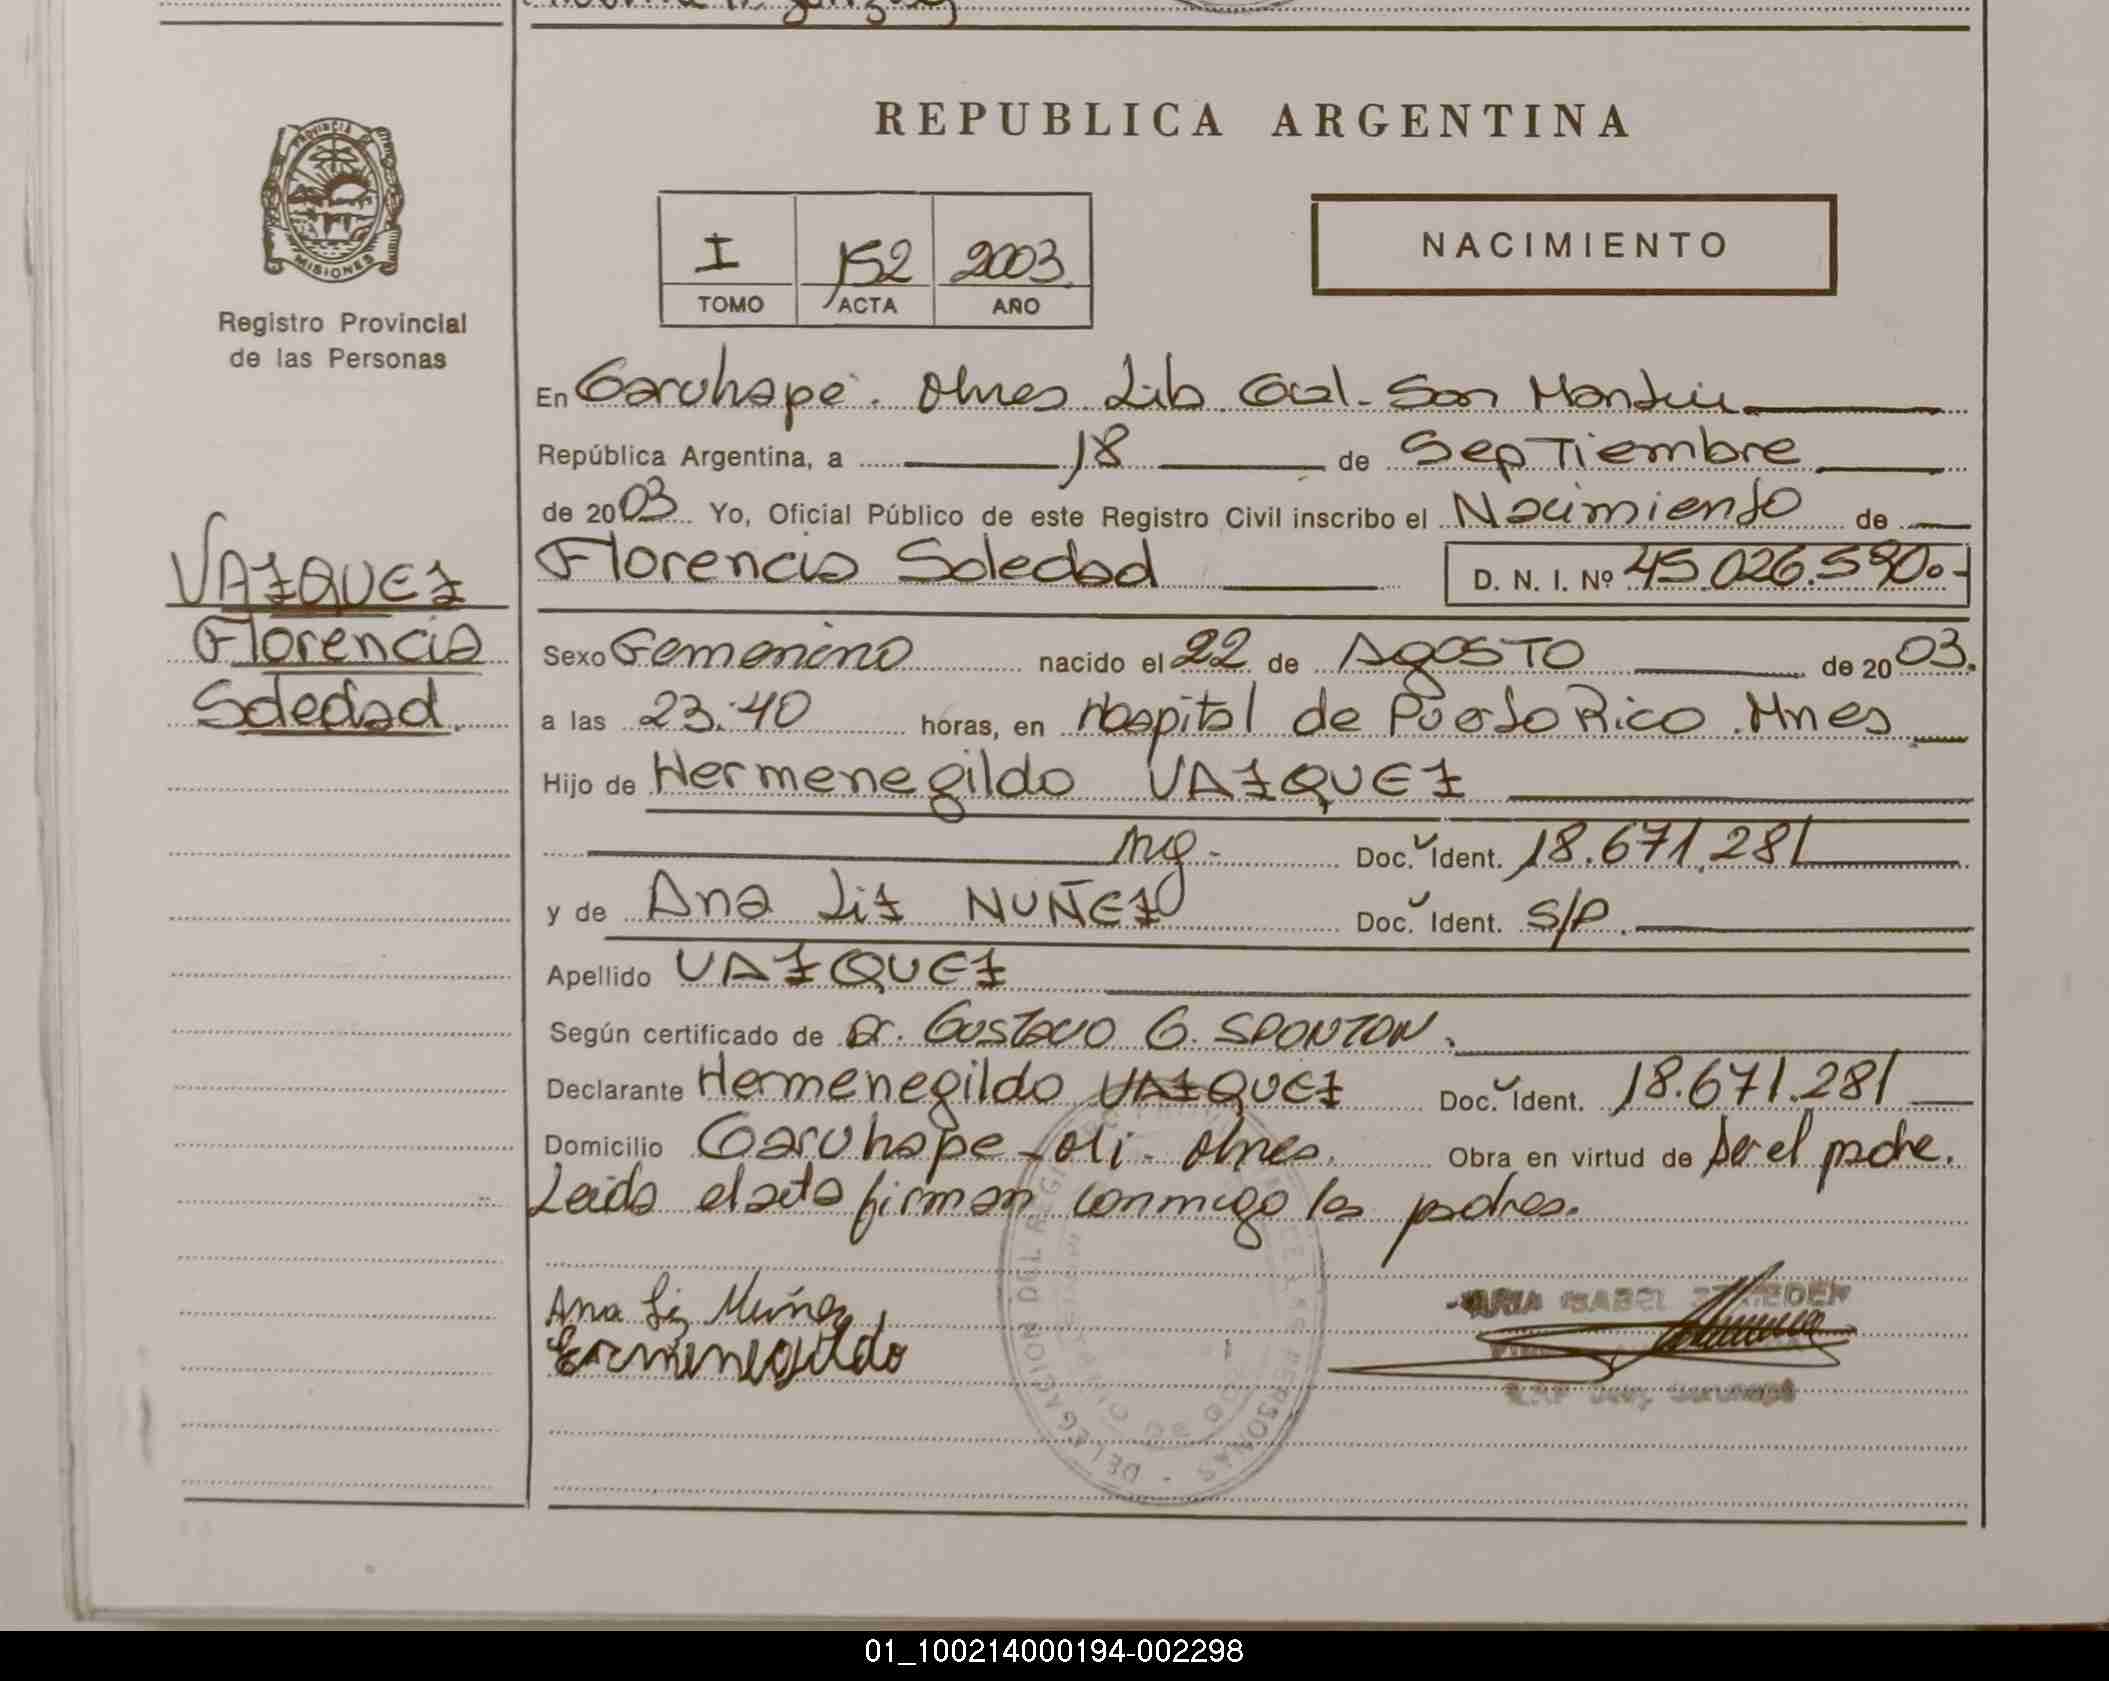 REPUBLICA ARGENTINA
PROVINCIA
MISIONES
Registro Provincial
de las Personas
I 152 2003.
TOMO ACTA AÑO
NACIMIENTO
En Garuhapé. Mnes Lib. Gral. San Martin
República Argentina, a 18 de Septiembre
de 2003 Yo, Oficial Público de este Registro Civil inscribo el Nacimiento de
Florencia Soledad D. N. I. Nº 45.026.590.-
VAZQUEZ
Florencia
Soledad.
Sexo Femenino nacido el 22 de Agosto de 2003.
a las 23:40 horas, en Hospital de Puerto Rico. Mnes
Hijo de Hermenegildo VAZQUEZ
Arg. Doc. Ident. 18.671.281
y de Ana Liz NUÑEZ Doc. Ident. S/P.
Apellido VAZQUEZ
Según certificado de Dr. Gustavo G. SPONTON.
Declarante Hermenegildo VAZQUEZ Doc. Ident. 18.671.281
Domicilio Garuhape-Mi- Mnes. Obra en virtud de ser el padre.
Leida el acta firman conmigo los padres.
Ana Liz Nuñez
Ermenegildo
DELEGACION DEL REGISTRO PERSONAS
ISABEL
01_100214000194-002298